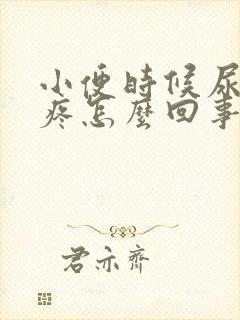 小便時候尿
疼怎麼回事
君亦齊